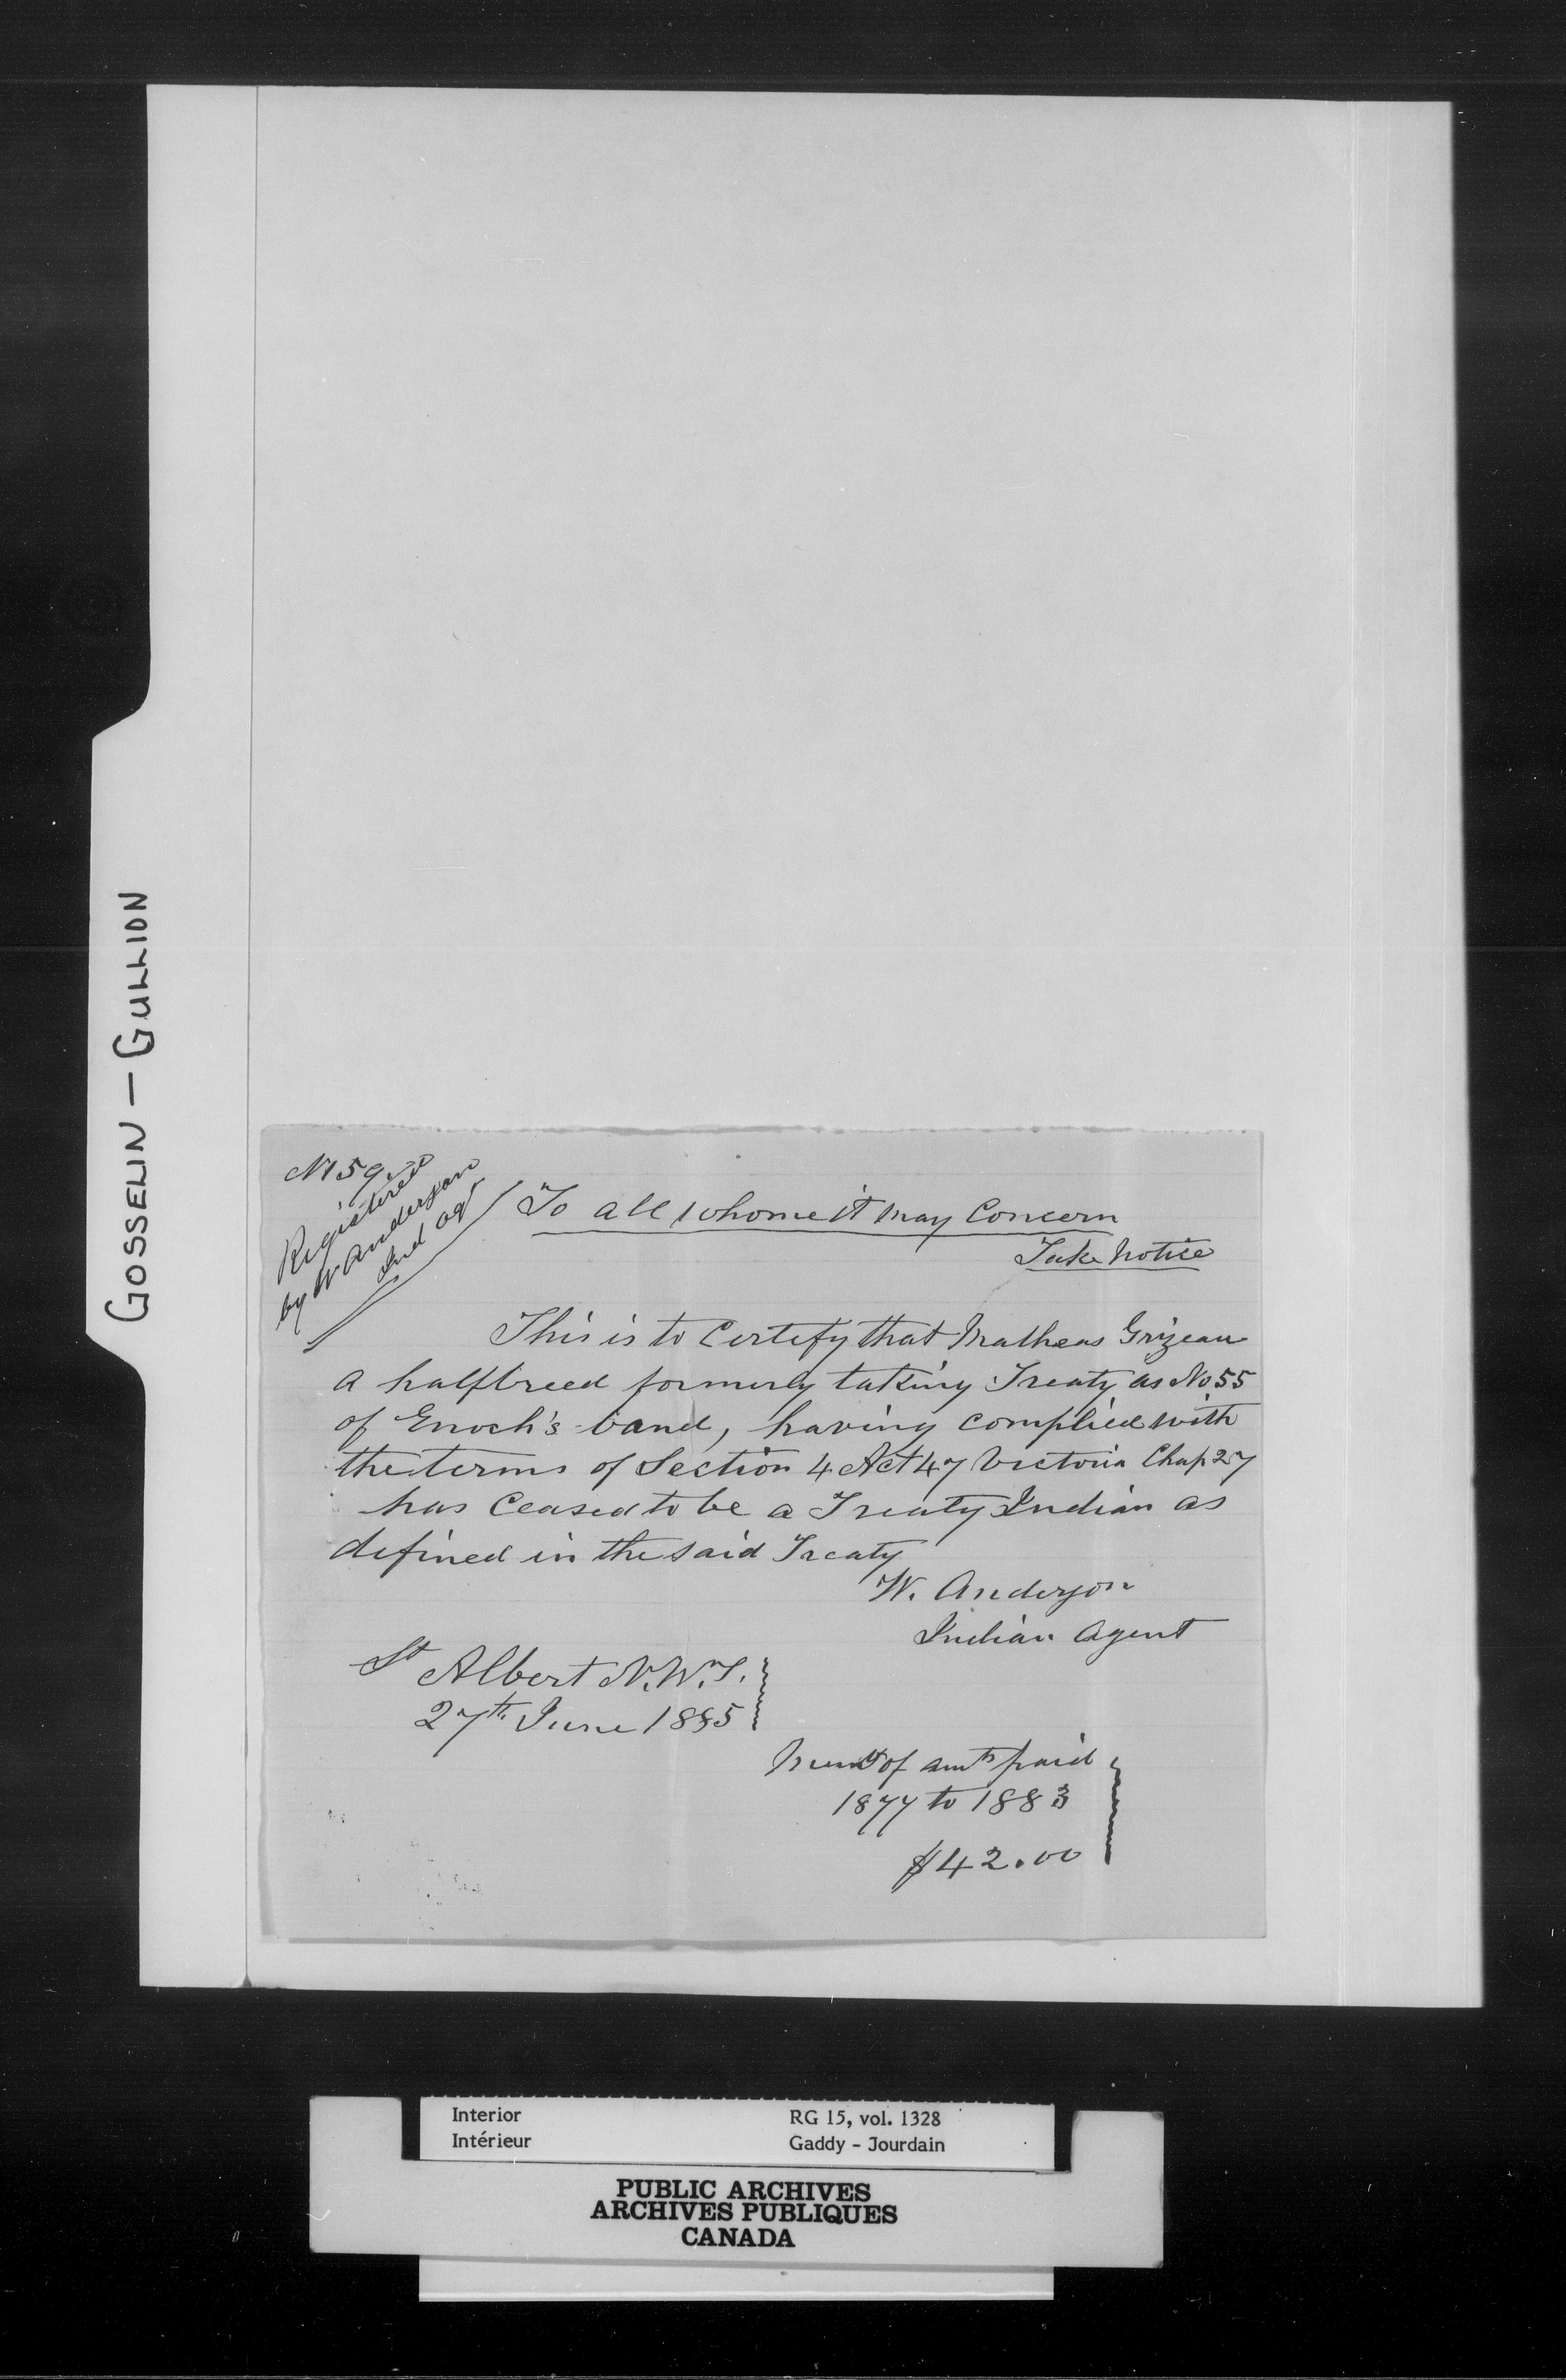 GOSSELIN — GULLION
No 59
Registered
by W Anderson
Ind Agt
To all whome it may Concern
Take Notice
This is to Certify that Matheas Grizeau
a halfbreed formerly taking Treaty as No 55
of Enoch's band, having complied with
the terms of Section 4 Act 47 Victoria Chap 27
has Ceased to be a Treaty Indian as
defined in the said Treaty
W. Anderson
Indian Agent
St Albert N.W.T.
27th June 1885
of amts paid
1877 to 1883
$42.00
Interior RG 15, vol. 1328
Intérieur Gaddy - Jourdain
PUBLIC ARCHIVES
ARCHIVES PUBLIQUES
CANADA